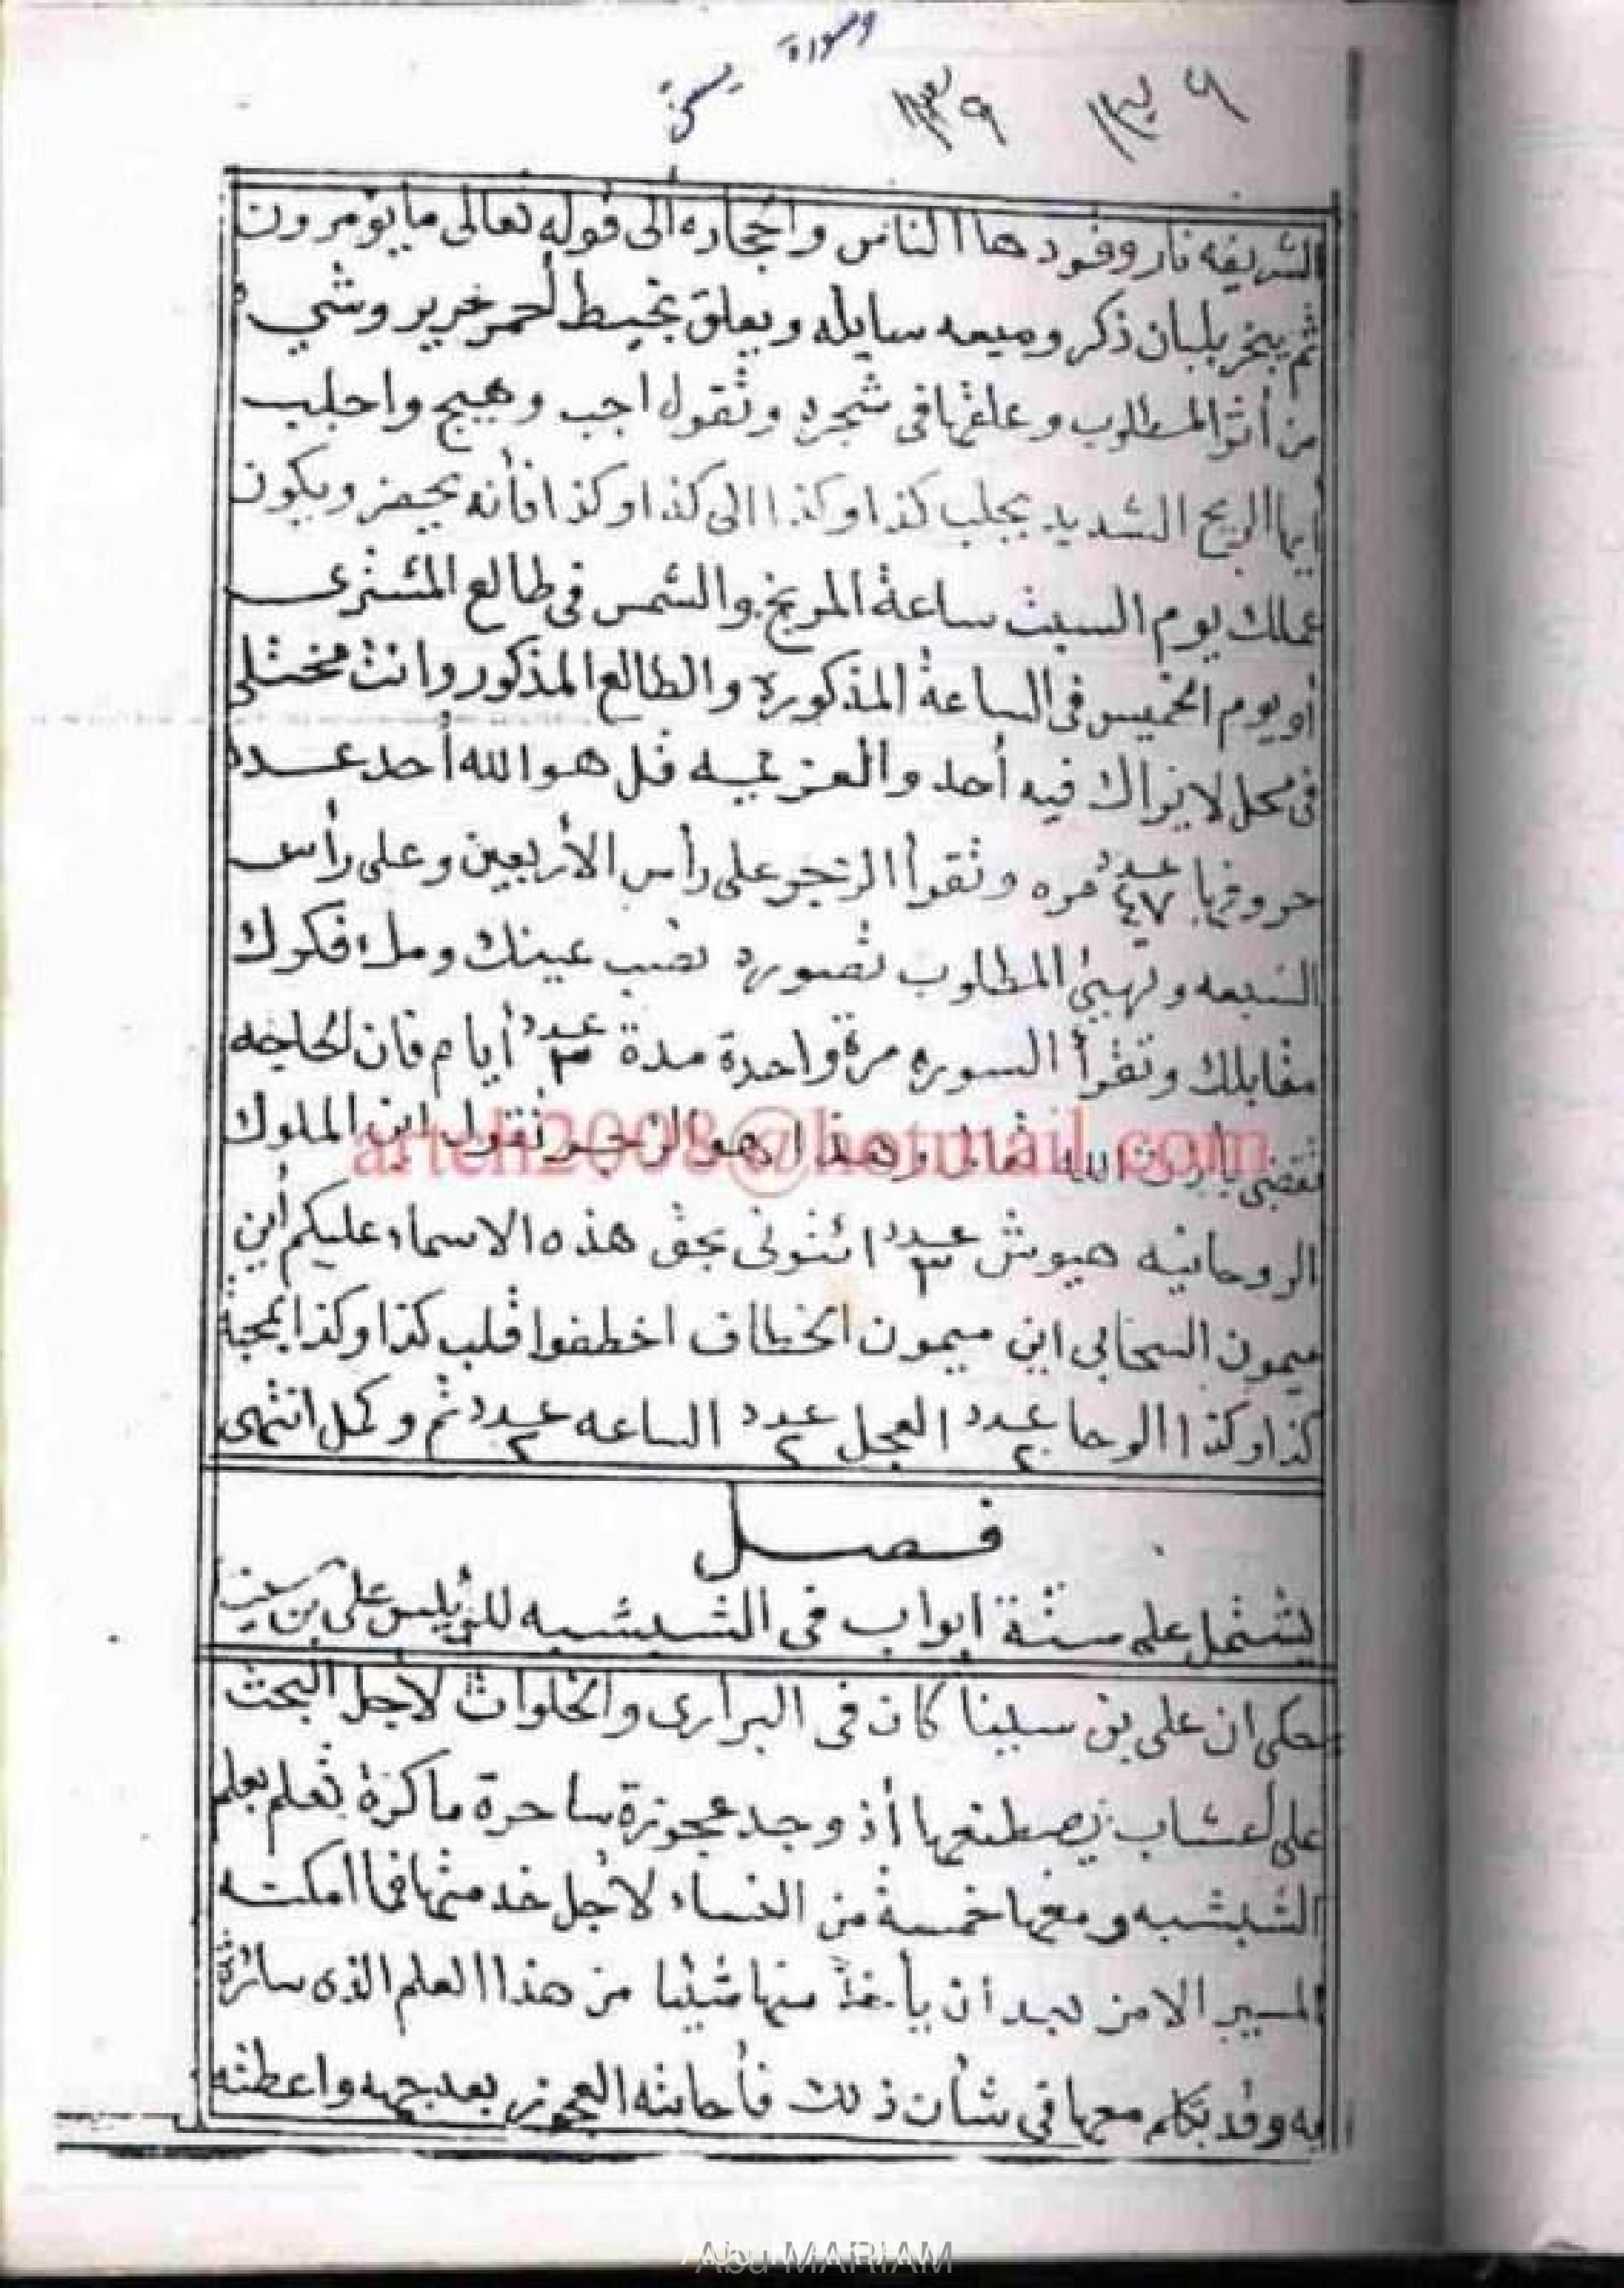 وصورة
يسخن
الشريفه نار وقودها االناس والحجاره الى قوله تعالى مايؤمرون
ثم يبخر بلبان ذكر وميعه سايله ويعلق بخيط أحمر حرير وشيء
من أثر المطلوب وعلقها فى شجره وتقول اجب وهيج واجلب
أيها الريح الشديد بجلب كذا وكذا الى كذا وكذا فأنه يحضر ويكون
عملك يوم السبت ساعة المريخ والشمس فى طالع المشترى
أو يوم الخميس فى الساعة المذكوره والطالع المذكور وانت مختلى
فى محل لا يراك فيه أحد والعزيميه قل هو الله أحد عدد
حروفها عدد ٤٧ مره وتقرأ الزجر على رأس الأربعين وعلى رأس
السبعه وتهيئ المطلوب تصوره نصب عينك وملء فكرك
مقابلك وتقرأ السوره مرة واحدة مدة عدد ٣ أيام فان الحاجه
تقضى بأذن الله وهذا هو الزجر تقول اين الملوك
arteh2008@hotmail.com
الروحانيه هيوش عدد ٣ ائتونى بحق هذه الاسماء عليكم أين
ميمون السحابي اين ميمون الخطاف اخطفوا قلب كذا وكذا بمحبة
كذا وكذا الوحا عدد ٢ العجل عدد ٢ الساعه عدد ٢ تم وكمل انتهى
فصل
يشتمل على ستة ابواب فى الشبشبه للرئيس على بن سينا
حكى ان على بن سينا كان فى البرارى والخلوات لأجل البحث
على أعشاب يصطنعها أذ وجد عجوزة ساحرة ماكرة تعلم بعلم
الشبشبه ومعها خمسة من النساء لأجل خدمتها فما امكنه
المسير الا من بعد أن يأخذ منها شيئا من هذا العلم الذى سائرة
به وقد تكلم معها فى شأن ذلك فأجابته العجوز بعد جهه واعطته
Abu MARIAM